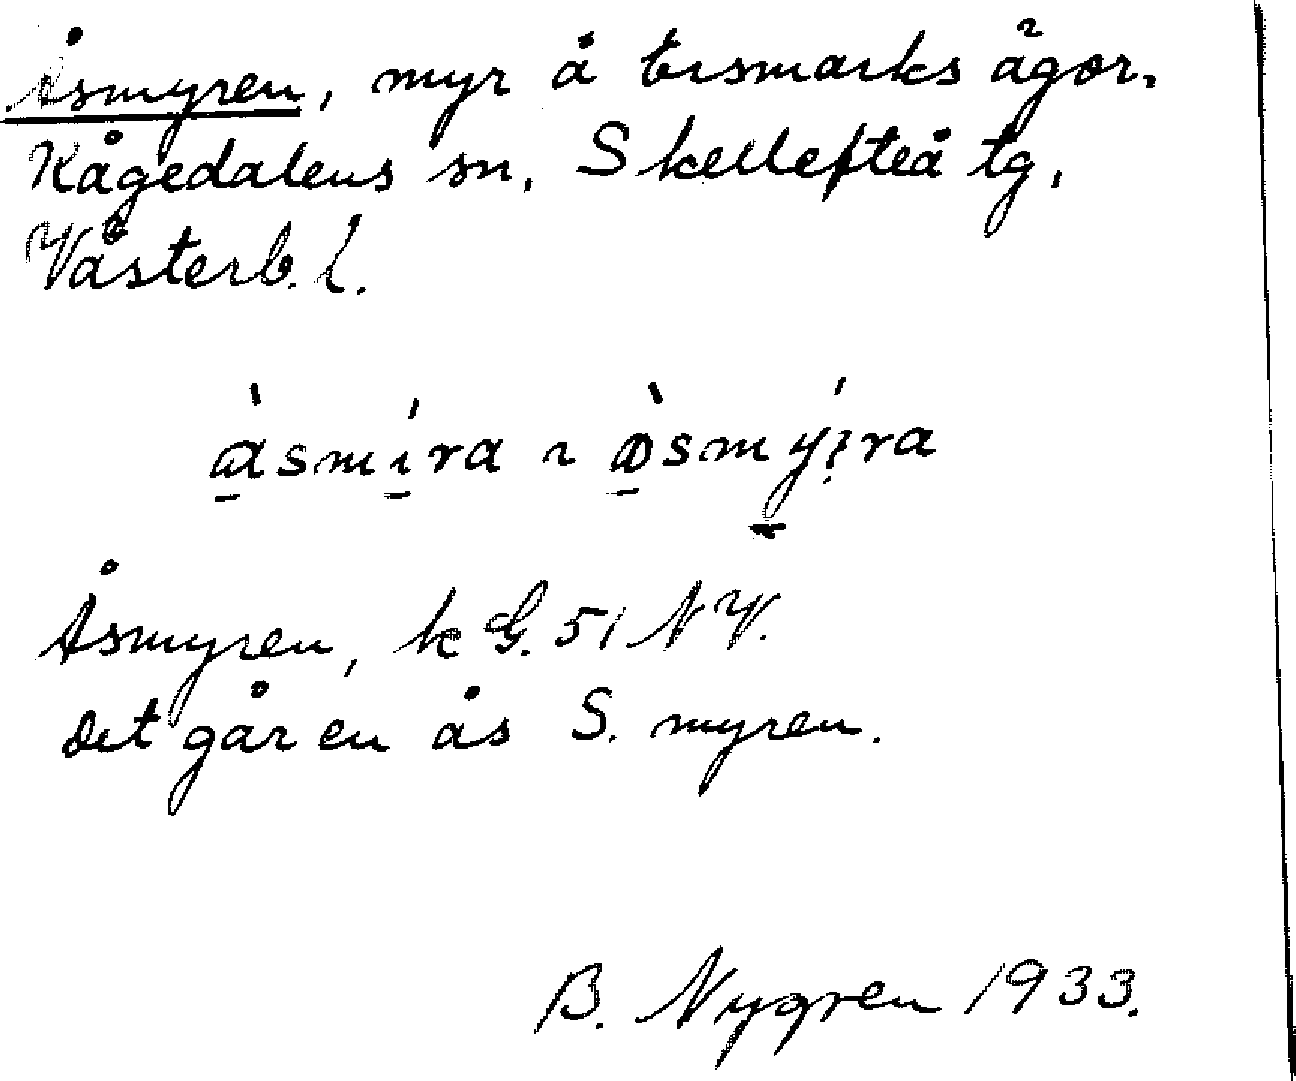 Åsmyren, myr å Ersmarks ägor,
Kågedalens sn, Skellefteå tg,
Västerb. l.
Åsmyren, k G. 51 NV.
Det går en ås S. myren.
B. Nygren 1933.